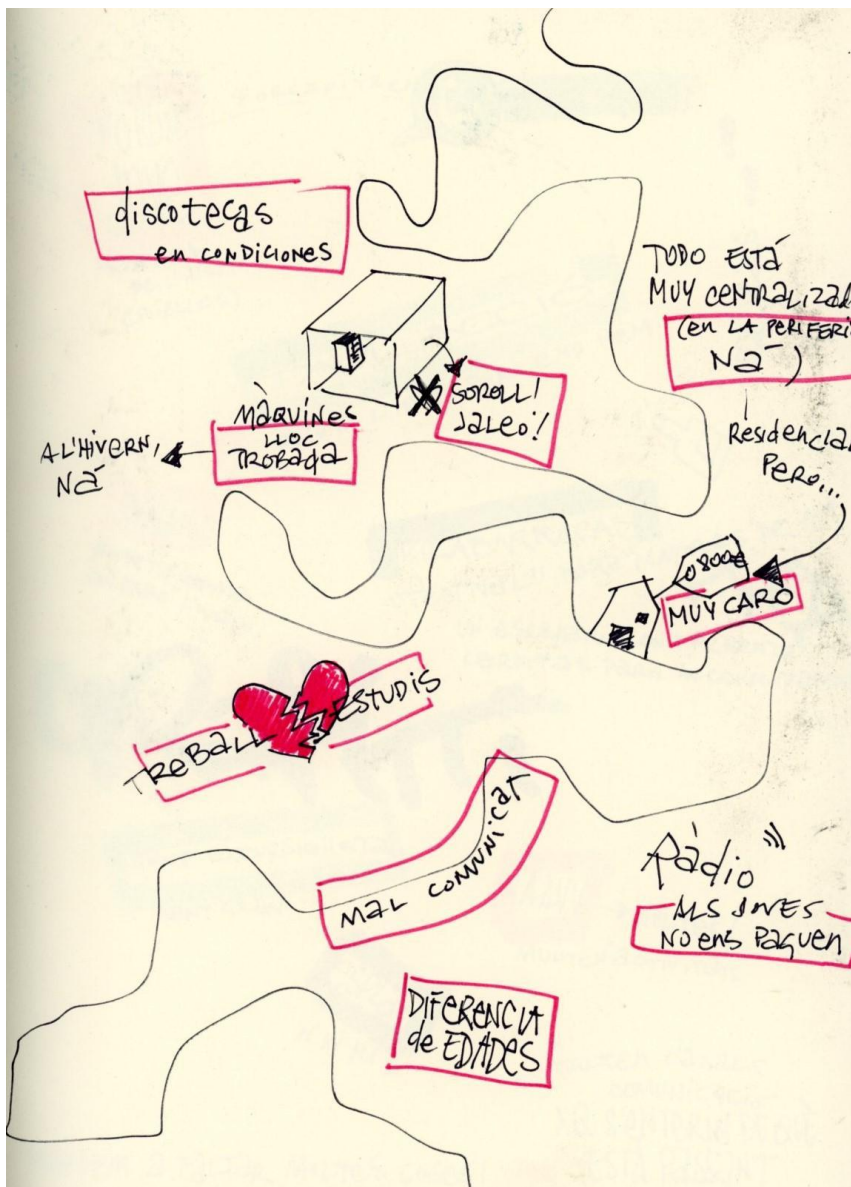 discotecas
en CONDICIONES
TODO ESTÁ
MUY CENTRALIZAD
(en LA PERIFERI
NÁ)
SOROLL!
JALEO!
MÀQUINES
LLOC
TROBADA
A L'HIVERN,
NÁ
Residencial
PERO...
0'800€
MUY CARO
TREBALL
ESTUDIS
MAL COMUNICAT
Ràdio
ALS JOVES
NO ens PAGUEN
DIFERENCIA
de EDADES